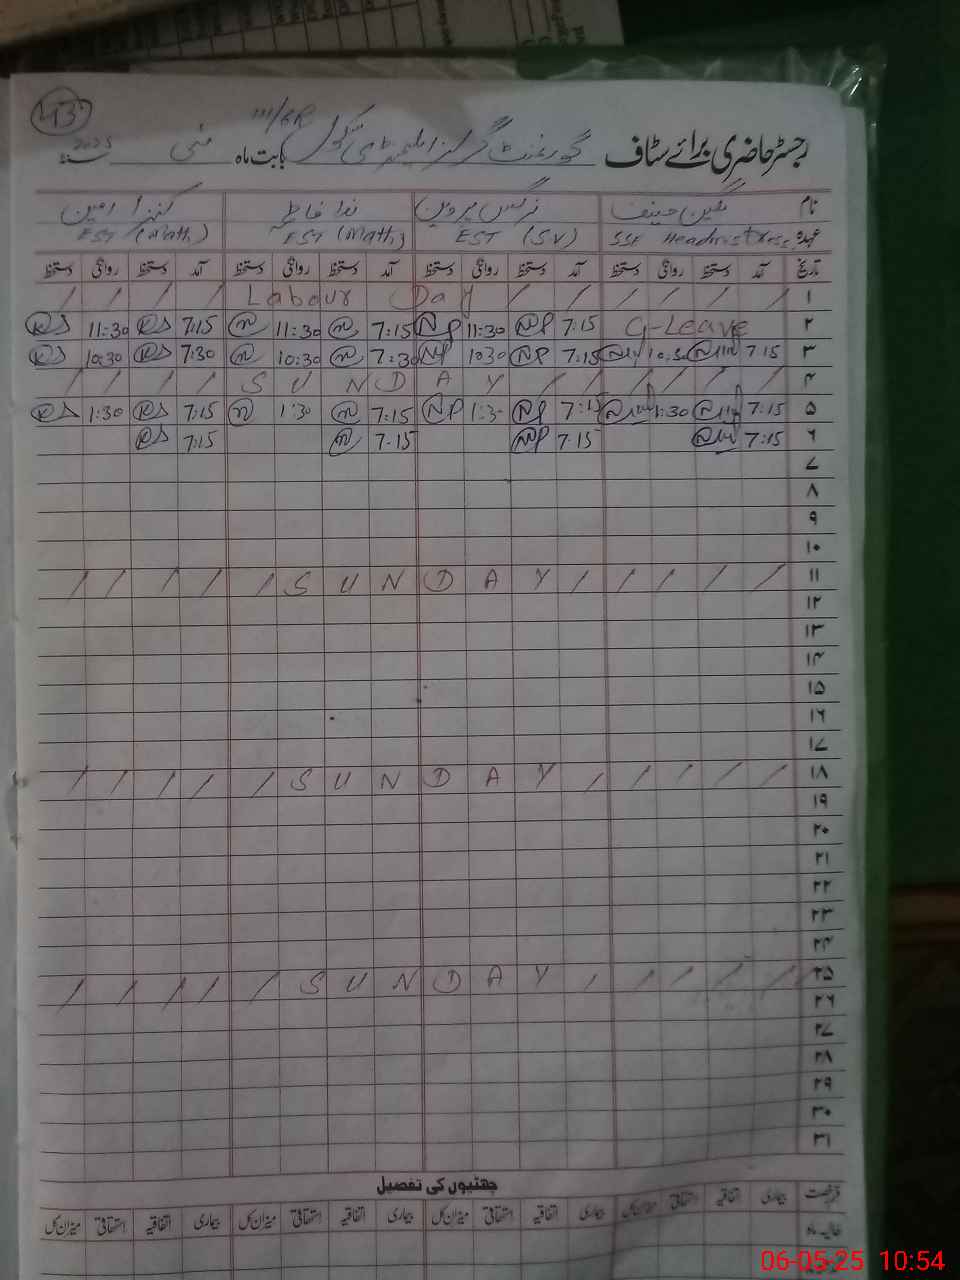 43
رجسٹر حاضری برائے سٹاف گورنمنٹ گرلز ایلیمنٹری سکول 111/6R بابت ماہ مئی سنہ 2025
نام نگین حنیف نرگس پروین ندا فاطمہ کنزا
عہدہ SSE Headmistress EST (S.V) EST (Math) EST (Math)
تاریخ آمد دستخط روانگی دستخط آمد دستخط روانگی دستخط آمد دستخط روانگی دستخط آمد دستخط روانگی دستخط
۱ / / / / Labour Day / / / / / /
۲ 11:30 7:15 11:30 7:15 NP 11:30 NP 7:15 C-Leave
۳ 10:30 7:30 10:30 7:30 NP 10:30 NP 7:15 10:30 7:15
۴ / / / / SUNDAY / / / / / /
۵ 1:30 7:15 1:30 7:15 NP 1:30 NP 7:15 1:30 7:15
۶ 7:15 7:15 NP 7:15 7:15
۷
۸
۹
۱۰
۱۱ / / / / / SUNDAY / / / / /
۱۲
۱۳
۱۴
۱۵
۱۶
۱۷
۱۸ / / / / / SUNDAY / / / / /
۱۹
۲۰
۲۱
۲۲
۲۳
۲۴
۲۵ / / / / / SUNDAY / / / / /
۲۶
۲۷
۲۸
۲۹
۳۰
۳۱
چھٹیوں کی تفصیل
قسم رخصت بیماری اتفاقیہ استحقاقی میزان کل بیماری اتفاقیہ استحقاقی میزان کل بیماری اتفاقیہ استحقاقی میزان کل بیماری اتفاقیہ استحقاقی میزان کل
حالیہ ماہ
06-05-25 10:54